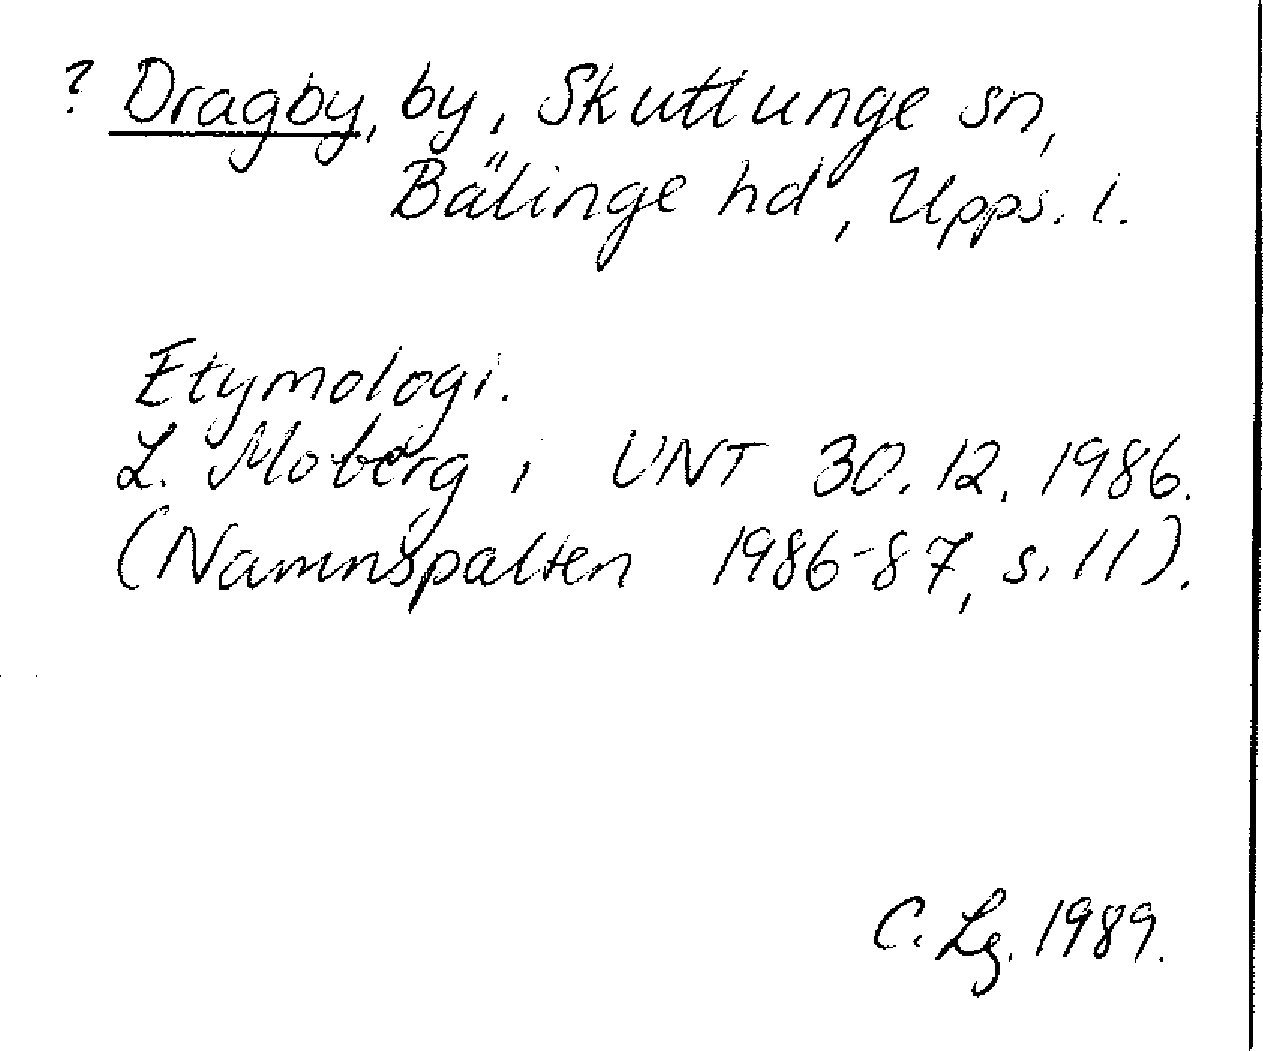 ? Dragby, by, Skuttunge sn,
Bälinge hd, Upps. l.
Etymologi.
L. Moberg i UNT 30.12.1986.
(Namnspalten 1986-87, s. 11).
C. Lg. 1989.